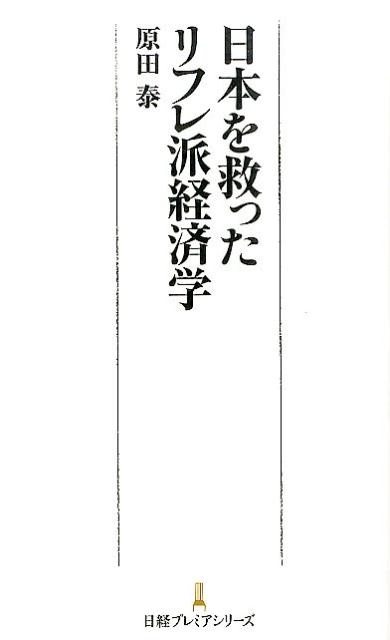 日本を救った
リフレ派経済学
原田 泰
日経プレミアシリーズ